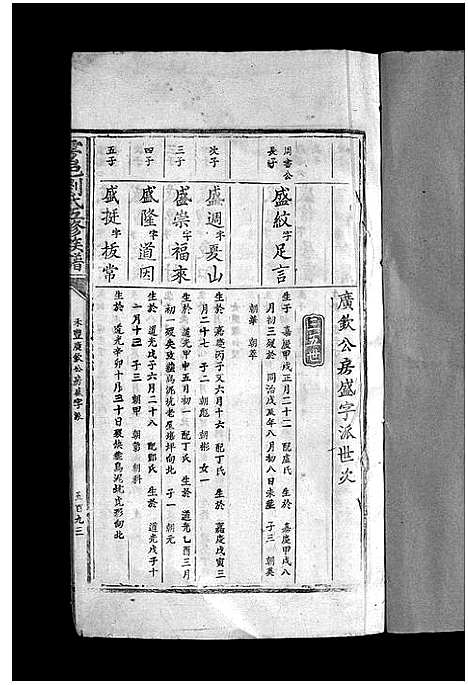 廣欽公房盛字派世次
三五世
周書公
長子
盛紋字足言
生于 嘉慶甲戌正月二十二 配盧氏 生於 嘉慶甲戌八
月初三歿於 同治戊辰年八月初八日未塟 子三 朝英
朝華 朝萃
次子
盛週字夏山
生於 嘉慶丙子又六月十六 配丁氏 生於 嘉慶戊寅三
月二十七 子二 朝彪 朝彬 女一
三子
盛崇字福來
生於 道光甲申五月初一 配丁氏 生於 道光乙酉三月
初一 子一 朝元
四子
盛隆字道因
生於 道光戊子六月二十八 配鄧氏 生於 道光戊子十
一月十三 子三 朝甲 朝第 朝科
五子
盛挺字板常
生於 道光辛卯十月三十日歿
雲邑劉氏五修族譜
禾豐廣欽公房盛字派
五百九三